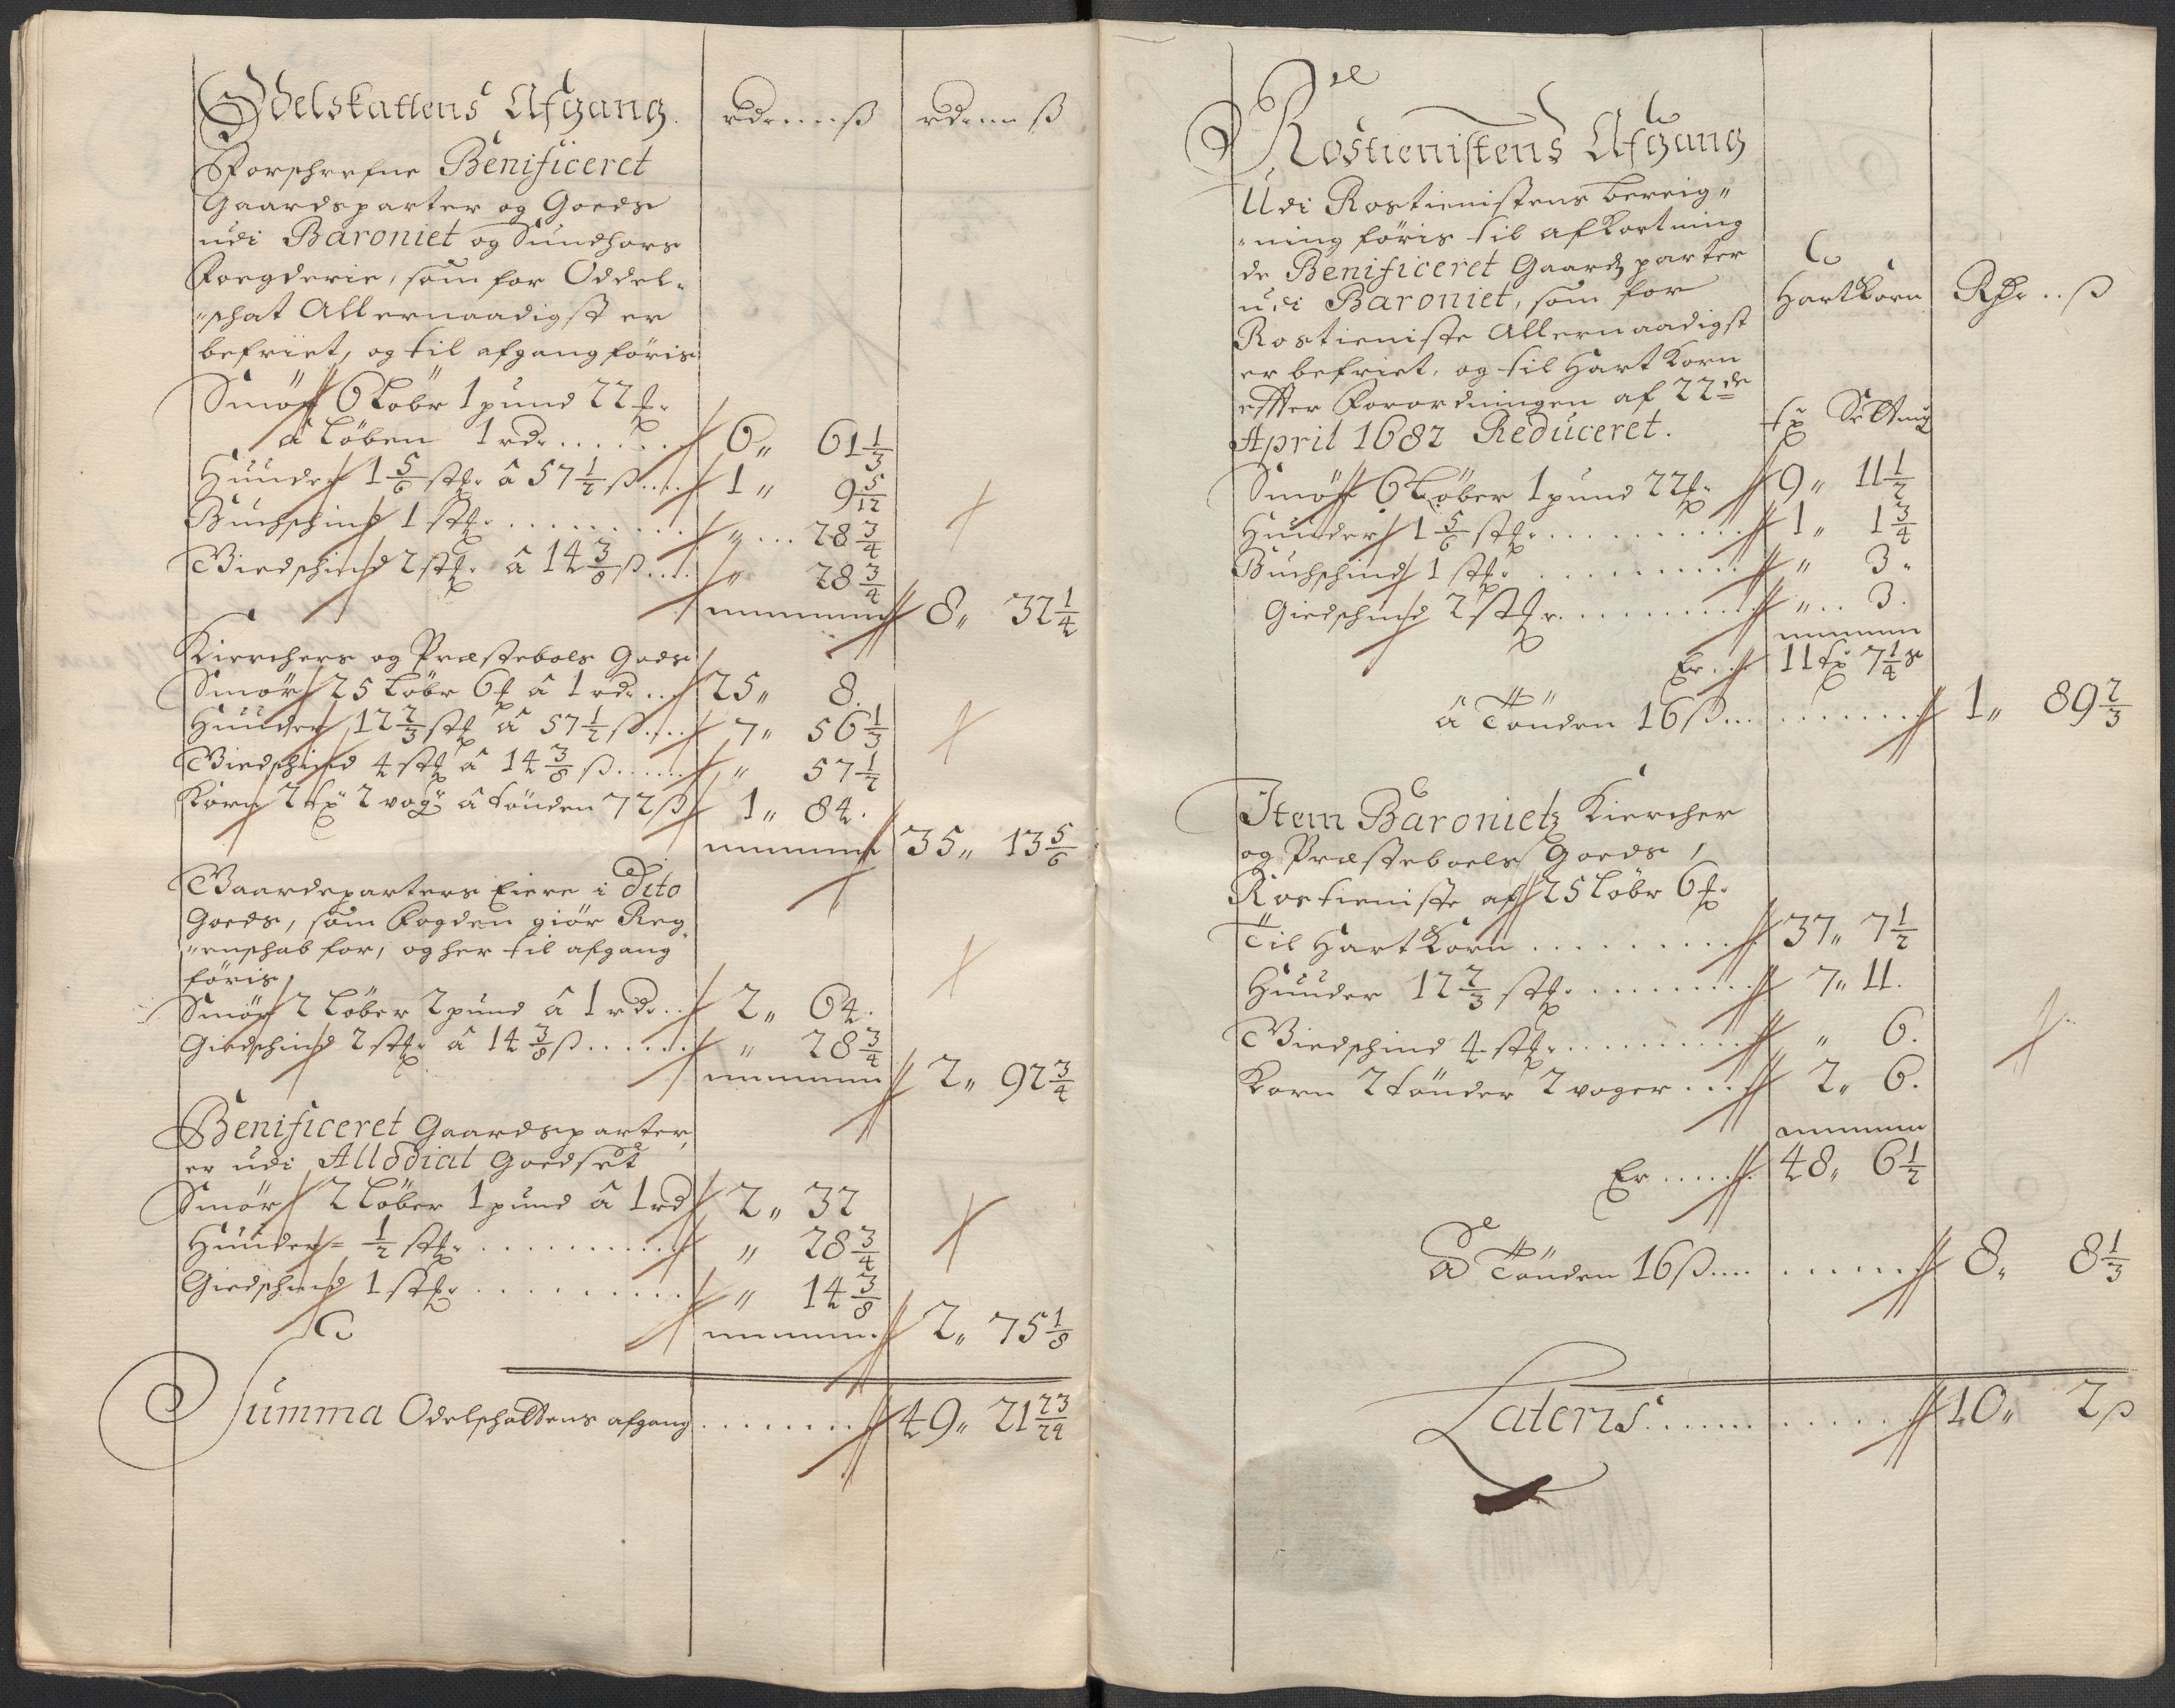 Odelskattens Afgang. rdr ß rdr ß
Forschrefne Benificeret
Gaardsparter og Goeds
udi Baroniet og Sundhors
Foegderie, som for Oddel-
"schat Allernaadigst er
befriet, og til afgang föris
Smör 6 Löbr 1 pund 22 ℔r
â Löben 1 rdr ...... 6" 61 1/3
Huuder 1 5/6 stkr â 57 1/2 ß.... 1" 9 5/12
Buchschind 1 stkr ........ " ... 28 3/4
Giedschind 2 stkr â 14 3/8 ß.... " 28 3/4
8" 32 1/4
Kierchers og Præstebols Gods
Smör 25 Löbr 6 ℔ â 1 rdr ... 25" 8.
Huuder 12 2/3 stk â 57 1/2 ß.... 7" 56 1/3
Giedschind 4 stk â 14 3/8 ß...... " 57 1/2
Korn 2 tr 2 vogr â tönden 72 ß 1" 84.
35" 13 5/6
Gaardsparters Eiere i Dito
Goeds, som Fogden giör Reg-
"enschab for, og her til afgang
föris
Smör 2 Löber 2 pund â 1 rdr .. 2" 64.
Giedschind 2 stkr â 14 3/8 ß...... " 28 3/4
2" 92 3/4
Benificeret Gaardsparter,
er udi Allodial Goedset
Smör 2 Löber 1 pund â 1 rd 2" 32
Huuder - 1/2 stkr .......... " 28 3/4
Giedschind 1 stkr .......... " 14 3/8
2" 75 1/8
Summa Odelschattens afgang ........ 49" 21 23/24
Rostienistens Afgang
Udi Rostienistens bereig"
"ning föris til afkortning
de Benificeret Gaardz parter
udi Baroniet, som for Hartkorn Rdr .. ß
Rostieniste Allernaadigst
er befriet, og til Hart Korn
effter Forordningen af 22de
April 1682 Reduceret. tr Setting
Smör 6 Löber 1 pund 22 ℔r 9" 11 1/2
Huuder 1 5/6 stkr ......... 1" 1 3/4
Buchschind 1 stkr .......... " 3.
Giedschind 2 stkr .......... " .. 3.
Er .. 11 tr 7 1/4 s
â Tönden 16 ß ... ....... 1" 89 2/3
Item Baronietz Kiercher
og Præsteboels Goeds,
Rostieniste af 25 Löbr 6 ℔r
Til Hart Korn ......... 37" 7 1/2
Huuder 12 2/3 stkr ........ 7" 11.
Giedschind 4 stkr ......... " 6.
Korn 2 tönder 2 voger .... 2" 6.
Er ..... 48" 6 1/2
â Tönden 16 ß.... ...... 8" 8 1/3
Lateris ............ 10" 2 ß